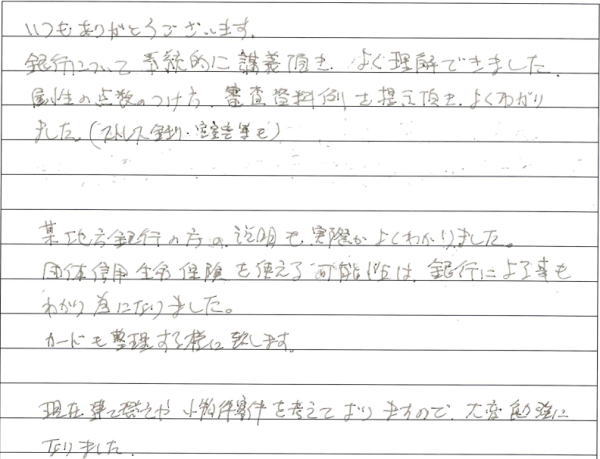 いつもありがとうございます。
銀行について系統的に講義頂き、よく理解できました。
属性の点数のつけ方、審査資料例を提示頂き、よくわかり
ました。(ストレス金利・空室率等も)
某地方銀行の方の説明も、実際がよくわかりました。
団体信用生命保険を使える可能性は、銀行による事も
わかり為になりました。
カードも整理する様に致します。
現在建て替えや小物件案件を考えておりますので、大変勉強に
なりました。